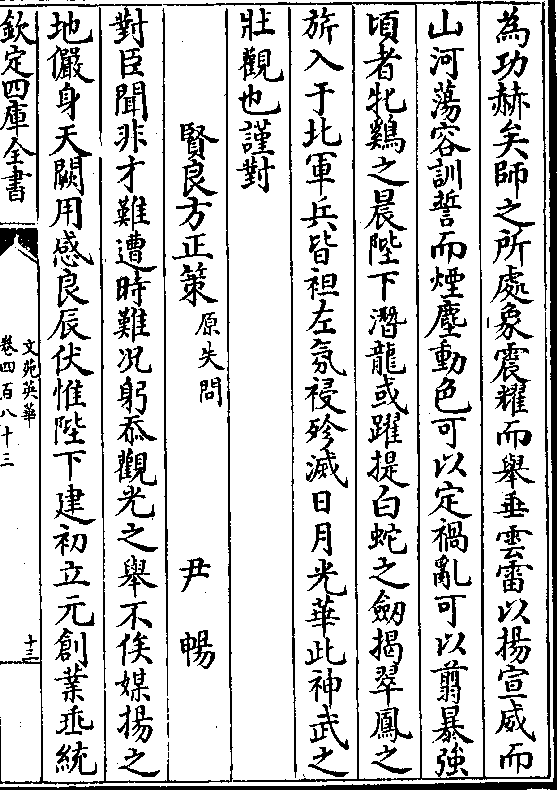 為功赫矣師之所處象震耀而舉垂雲雷以揚宣威而
山河蕩容訓誓而煙塵動色可以定禍亂可以翦暴強
頃者牝鷄之晨陛下潛龍或躍提白蛇之劒揭翠鳳之
旂入于北軍兵皆袒左氛祲殄滅日月光華此神武之
壯觀也謹對
賢良方正策原失問 尹暢
對臣聞非才難遭時難况躬忝觀光之舉不俟媒揚之
地儼身天闕用感良辰伏惟陛下建初立元創業垂統
欽定四庫全書
文苑英華
卷四百八十三
十三